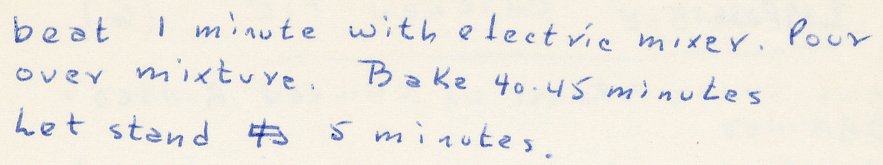 beat 1 minute with electric mixer. Pour
over mixture. Bake 40-45 minutes
Let stand 5 minutes.